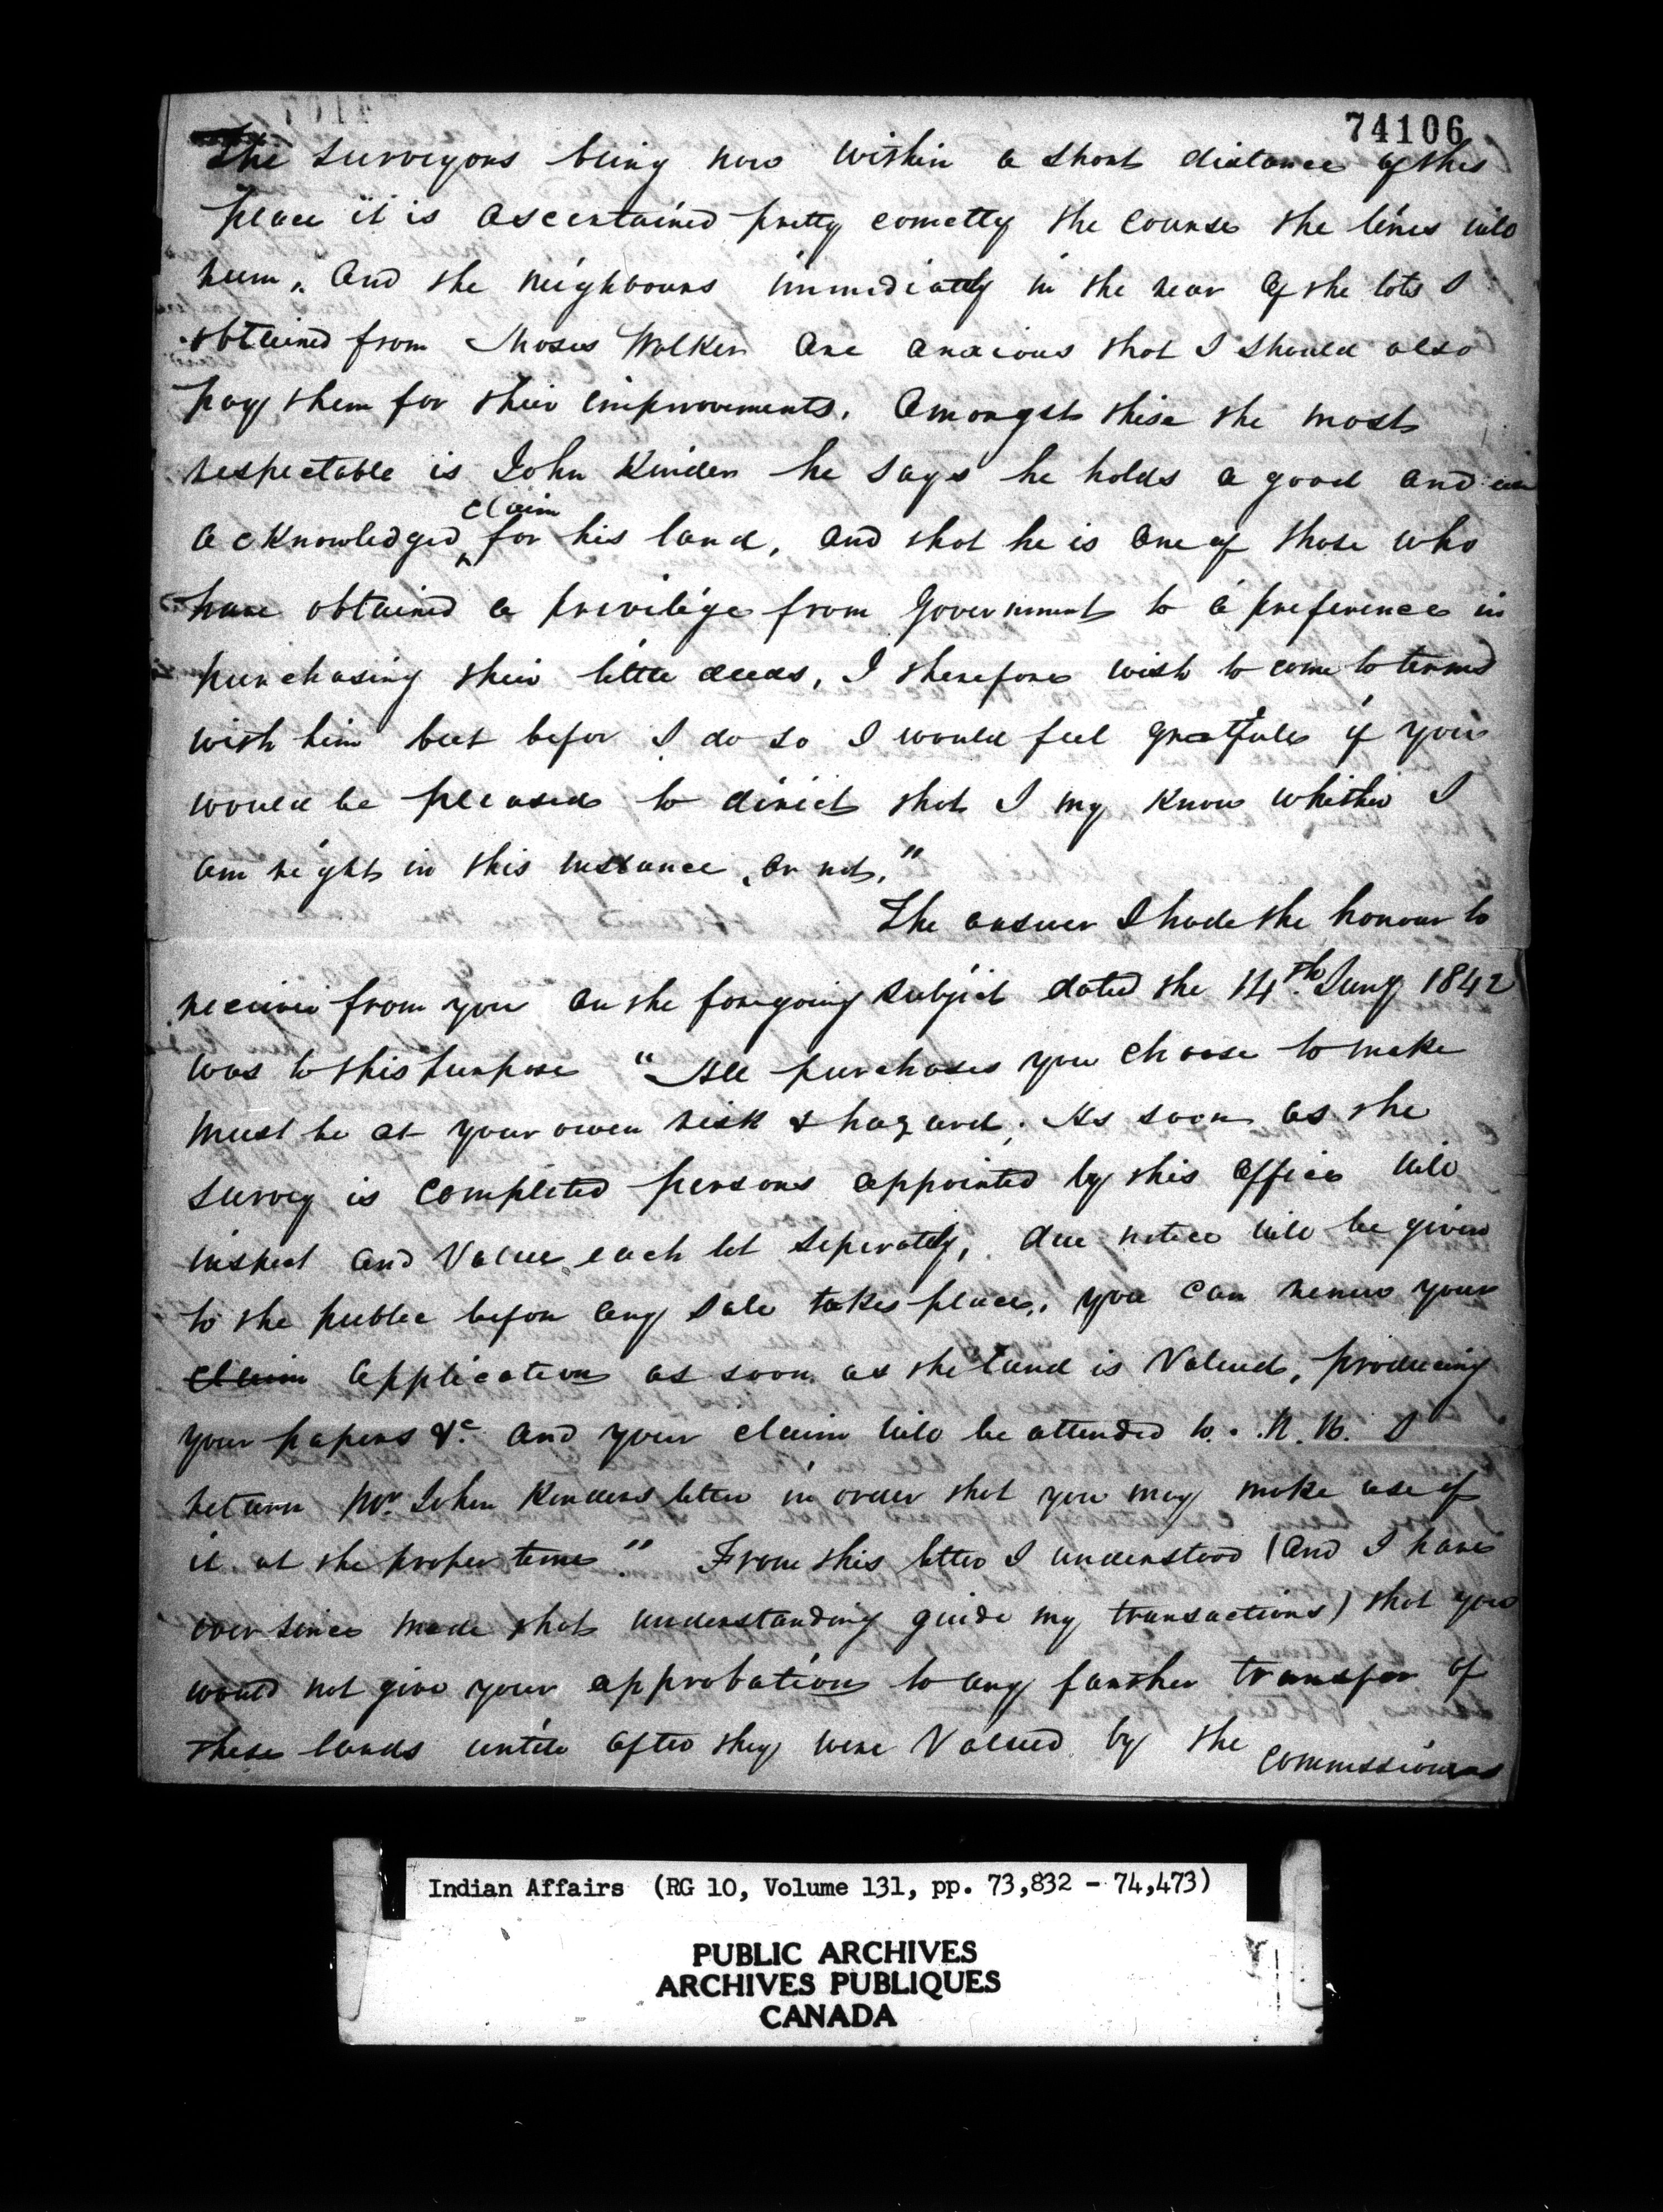 74106
The surveyors being now within a short distance of this
place it is ascertained pretty correctly the course the lines will
run, and the neighbours immediately in the rear of the lots I
obtained from Moses Walker are anxious that I should also
pay them for their improvements. Amongst these the most
respectable is John Kinder he says he holds a good and an
acknowledged claim for his land, and that he is one of those who
have obtained a privilege from Government to a preference in
purchasing their little deeds, I therefore wish to come to terms
with him but befor I do so I would feel gratful if you
would be pleased to direct that I my know whither I
am right in this instance, or not."
The answer I hade the honour to
receive from you on the foregoing subject dated the 14th. 1842
was to this purpose "All purchases you choose to make
must be at your own risk & hazard; As soon as the
survey is completed persons appointed by this office will
inspect and Value each lot seperately, due notice will be given
to the public before any sale takes place, you can renew your
claim application as soon as the land is Valued, producing
your papers &c. and your claim will be attended to. N.B. I
return Mr John Kinders letter in order that you may make use of
it at the proper time". From this letter I understood (and I have
ever since made that understanding guide my transactions) that you
would not give your approbation to any farther transfer of
these lands untill after they were Valued by the commissioners
Indian Affairs (RG 10, Volume 131, pp. 73,832 - 74,473)
PUBLIC ARCHIVES
ARCHIVES PUBLIQUES
CANADA